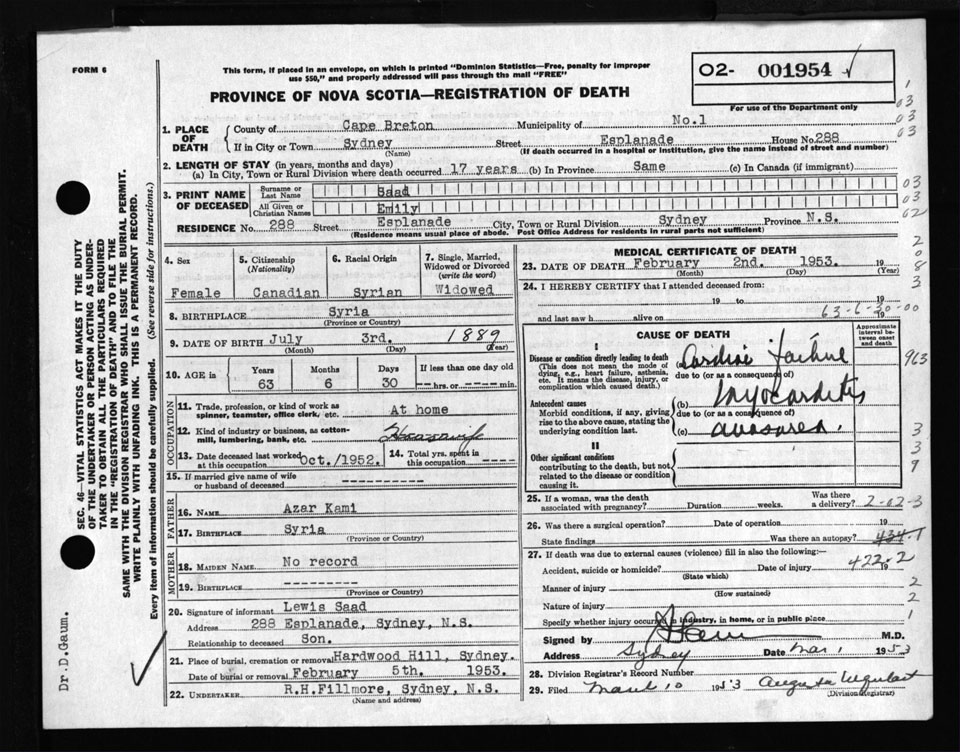 FORM 6
This form, if placed in an envelope, on which is printed "Dominion Statistics—Free, penalty for improper
use $50," and properly addressed will pass through the mail "FREE"
02- 001954
For use of the Department only
PROVINCE OF NOVA SCOTIA—REGISTRATION OF DEATH
1. PLACE OF DEATH
County of Cape Breton Municipality of No.1
If in City or Town Sydney Street Esplanade House No. 288
(Name) (If death occurred in a hospital or institution, give the name instead of street and number)
2. LENGTH OF STAY (in years, months and days)
(a) In City, Town or Rural Division where death occurred 17 years (b) In Province Same (c) In Canada (if immigrant)
3. PRINT NAME OF DECEASED
Surname or Last Name Saad
All Given or Christian Names Emily
RESIDENCE No. 288 Street Esplanade City, Town or Rural Division Sydney Province N.S.
(Residence means usual place of abode. Post Office Address for residents in rural parts not sufficient)
1
03
03
63
03
03
62
2
0
8
3
4. Sex
Female
5. Citizenship
(Nationality)
Canadian
6. Racial Origin
Syrian
7. Single, Married,
Widowed or Divorced
(write the word)
Widowed
8. BIRTHPLACE Syria
(Province or Country)
9. DATE OF BIRTH July 3rd. 1889
(Month) (Day) (Year)
10. AGE in
Years Months Days If less than one day
63 6 30 -- hrs. or -- min.
OCCUPATION
11. Trade, profession, or kind of work as
spinner, teamster, office clerk, etc. At home
12. Kind of industry or business, as cotton-
mill, lumbering, bank, etc. Housewife
13. Date deceased last worked
at this occupation Oct./1952.
14. Total yrs. spent in
this occupation
15. If married give name of wife
or husband of deceased
FATHER
16. NAME Azar Kami
17. BIRTHPLACE Syria
(Province or Country)
MOTHER
18. MAIDEN NAME No record
19. BIRTHPLACE ----------
(Province or Country)
20. Signature of informant Lewis Saad
Address 288 Esplanade, Sydney, N.S.
Relationship to deceased Son.
21. Place of burial, cremation or removal Hardwood Hill, Sydney.
Date of burial or removal February 5th. 1953.
22. UNDERTAKER R.H.Fillmore, Sydney, N.S.
(Name and address)
MEDICAL CERTIFICATE OF DEATH
23. DATE OF DEATH February 2nd. 1953. 19
(Month) (Day) (Year)
24. I HEREBY CERTIFY that I attended deceased from:
19 to 19
and last saw h alive on 19
63-6-30-00
CAUSE OF DEATH
Approximate interval between onset and death
I
Disease or condition directly leading to death
(This does not mean the mode of
dying, e.g., heart failure, asthenia,
etc. It means the disease, injury, or
complication which caused death.)
Cardiac failure
963
due to (or as a consequence of)
Antecedent causes
Morbid conditions, if any, giving
rise to the above cause, stating the
underlying condition last.
(b) Myocarditis
due to (or as a consequence of)
(c)
3
3
9
II
Other significant conditions
contributing to the death, but not
related to the disease or condition
causing it.
25. If a woman, was the death
associated with pregnancy? Duration weeks. Was there
a delivery?
2-02-3
26. Was there a surgical operation? Date of operation 19
State findings Was there an autopsy?
434-1
27. If death was due to external causes (violence) fill in also the following:—
Accident, suicide or homicide? Date of injury 19
(State which)
422-2
Manner of injury
(How sustained)
2
Nature of injury
2
Specify whether injury occurred in industry, in home, or in public place
1
Signed by M.D.
Address Sydney Date Mar 1 1953
28. Division Registrar's Record Number
29. Filed March 10 1953 Augusta Urquhart
(Division Registrar)
SEC. 46—VITAL STATISTICS ACT MAKES IT THE DUTY
OF THE UNDERTAKER OR PERSON ACTING AS UNDER-
TAKER TO OBTAIN ALL THE PARTICULARS REQUIRED
IN THE "REGISTRATION OF DEATH" AND TO FILE THE
SAME WITH THE DIVISION REGISTRAR WHO SHALL ISSUE THE BURIAL PERMIT.
WRITE PLAINLY WITH UNFADING INK. THIS IS A PERMANENT RECORD.
Every item of information should be carefully supplied. (See reverse side for instructions.)
Dr.D.Gaum.